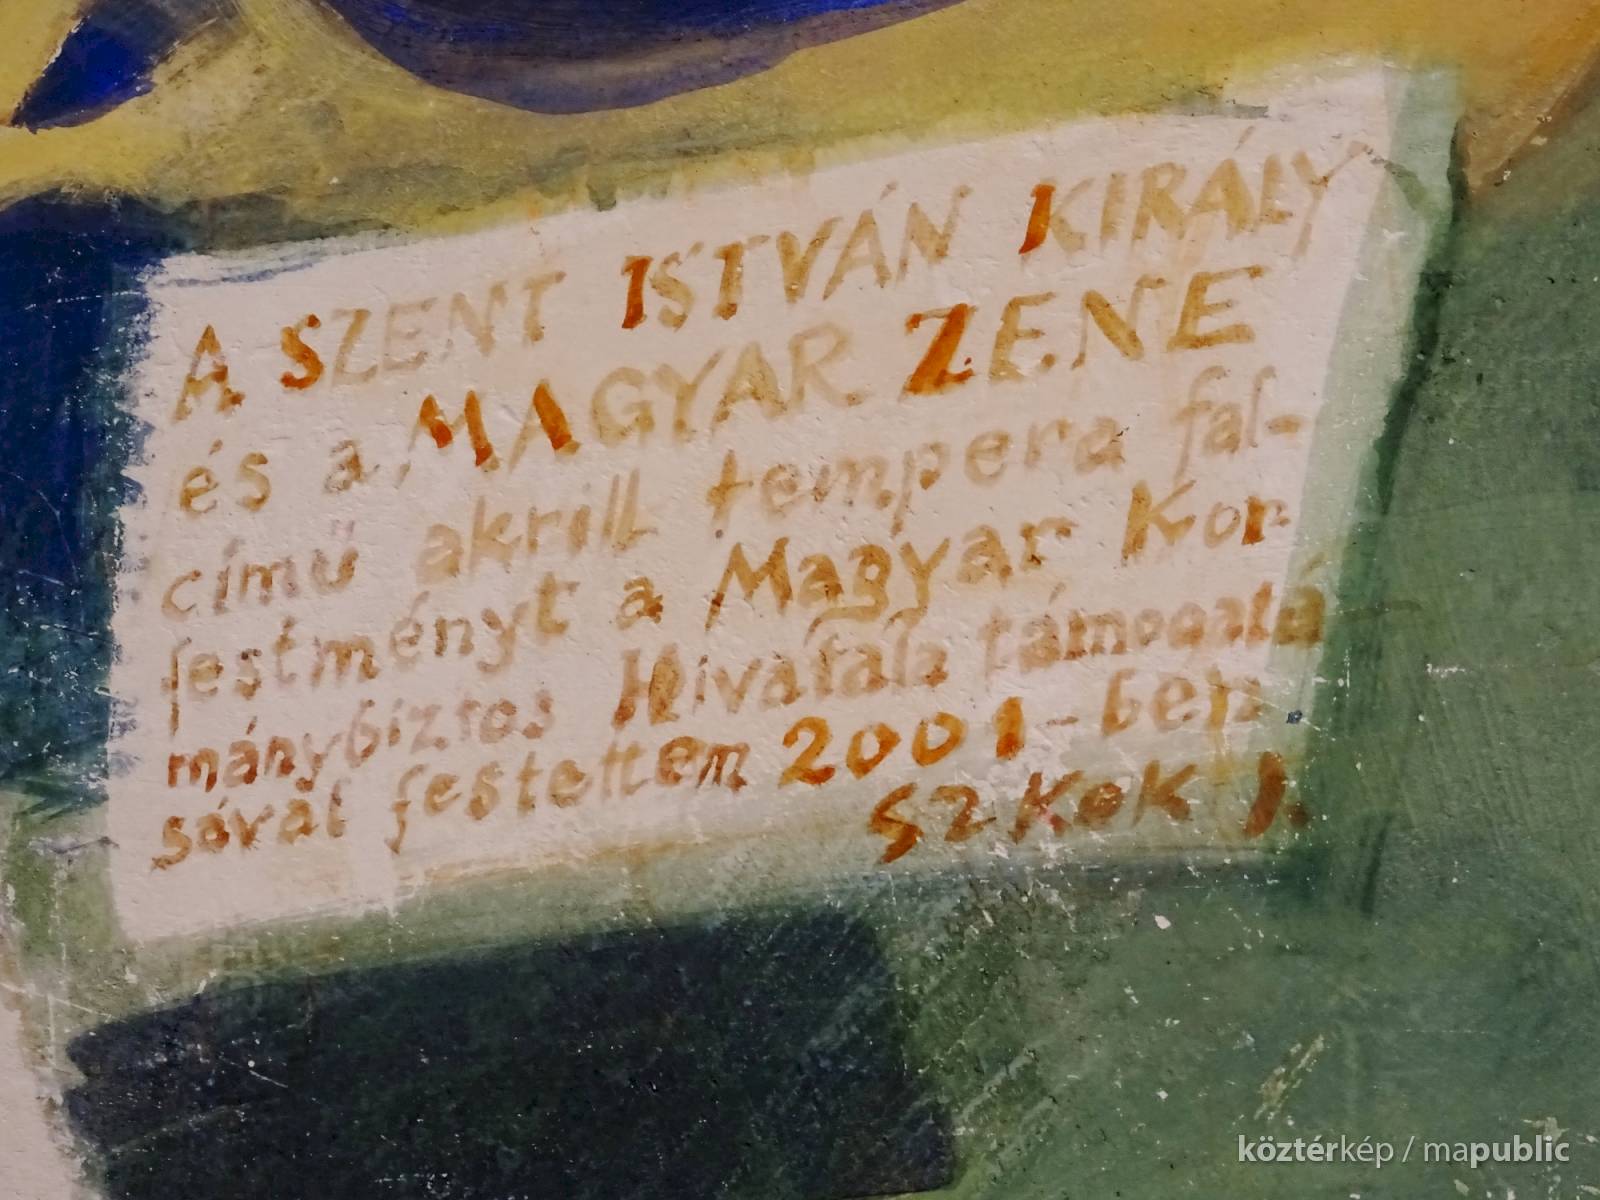 A SZENT ISTVÁN KIRÁLY
és a MAGYAR ZENE
című akrill tempera fal-
festményt a Magyar Kor
mánybiztos Hivatala támogatá
sával festettem 2001-ben
SZKOK I.
köztérkép / mapublic